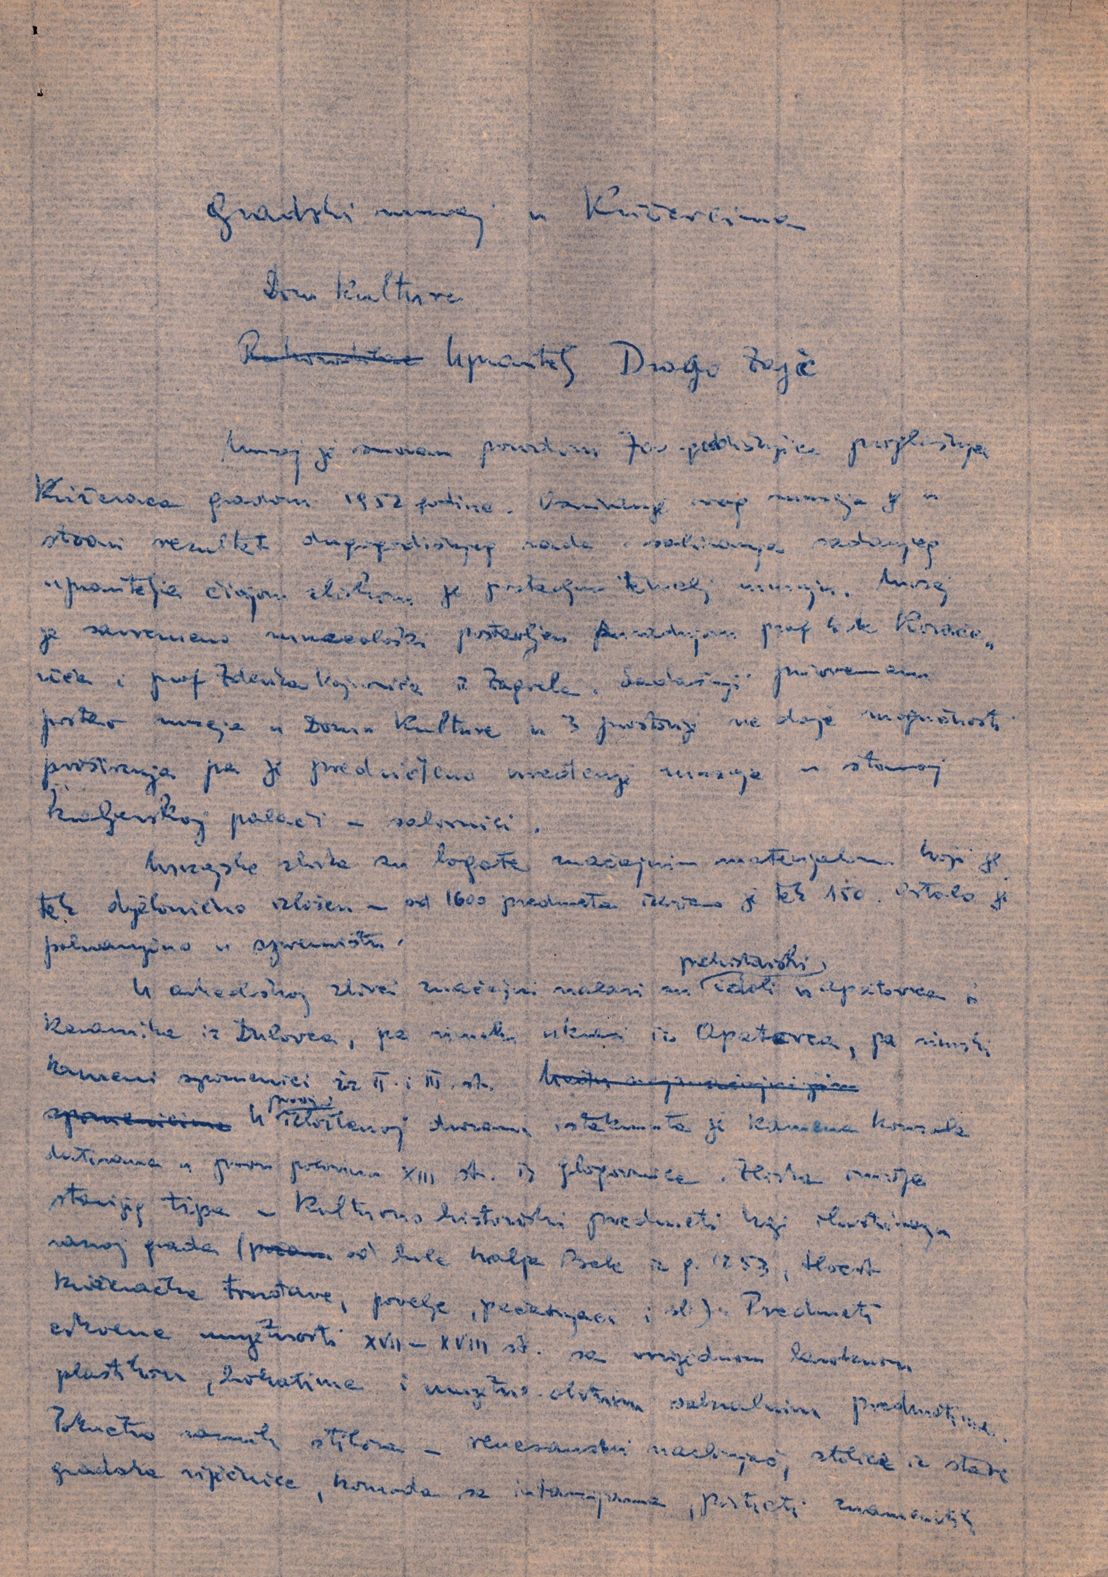 Gradski muzej u Križevcima
Dom Kulture
Upravitelj Drago
Muzej je osnovan povodom 700 godišnjice proglašenja
Križevaca gradom 1952 godine. Osnivanje ovog muzeja je u
stvari rezultat dugogodišnjeg rada i sabiranja sadanjeg
upravitelja čijom zbirkom je postavljen temelj muzeju. Muzej
je savremeno muzeološki postavljen prof
i prof Zdenka Vojnovića iz Zagreba. Sadašnji privremeni
muzeja u Domu Kulture u 3 prostorije ne daje mogućnosti
proširenja pa je predviđeno uređenje muzeja u staroj
palači –
Muzejske zbirke su bogate značajnim materijalom koji je
tek djelomično izložen – od 1600 predmeta izloženo je tek 150. Ostalo je
pohranjeno u spremištu.
prehistorijski
U arheološkoj zbirci značajni nalazi su idoli iz Apatovca i
Keramika iz Dulovca, pa rimski nakit iz Apatovca, pa rimski
kameni spomenici iz II. i III. st.
spomenicima U prvoj izložbenoj dvorani istaknuta je kamena konzola
datirana u prvu polovinu XIII st. iz Glogovnice. Zbirka oružja
starijeg tipa – Kulturno historijski predmeti koji ilustriraju
razvoj grada (od bule kralja Bele iz g. 1253,
Križevačke, povelje, pečatnjaci i sl.). Predmeti
crkvene umjetnosti XVII – XVIII st. sa vrijednom baroknom
plastikom, brokatima i umjetno-obrtnim sakralnim predmetima.
Pokućtvo raznih stilova – renesansni naslonjač, stolice iz stare
gradske vijećnice, komoda sa intarzijama, portreti znamenitih